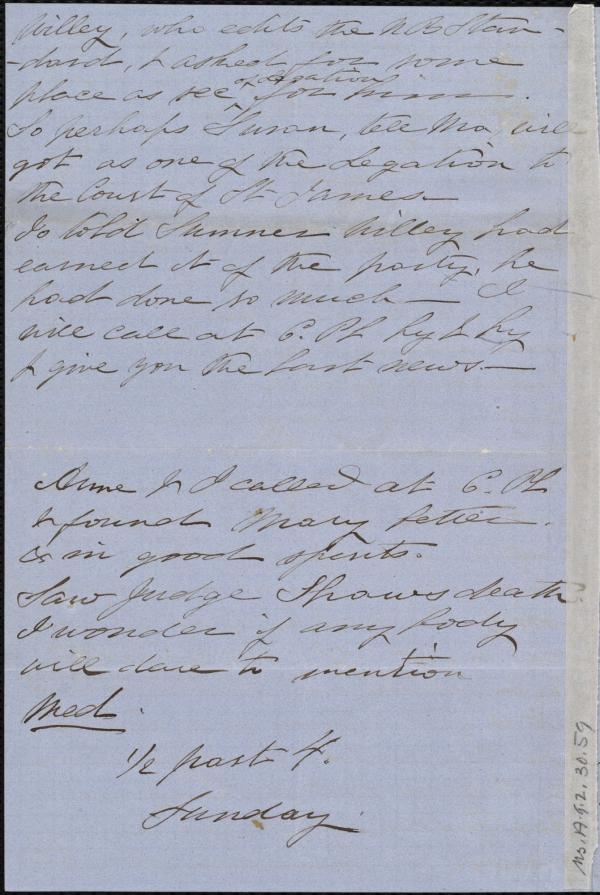 Willey, who edits the N B Stan-
-dard, & asked for some
place as sec of legation for him.
So perhaps Susan, tell Ma, will
get as one of the Legation to
the Court of St James—
Jo told Sumner Willey had
earned it of the party, he
had done so much— I
will call at C. Pl by & by
& give you the last news.—
Anne & I called at C. Pl
& found Mary better.
& in good spirits.
Saw Judge Shaws death
I wonder if any body
will dare to mention
Med.
1/2 past 4.
Sunday.
Ms. A.9.2. 30. 59